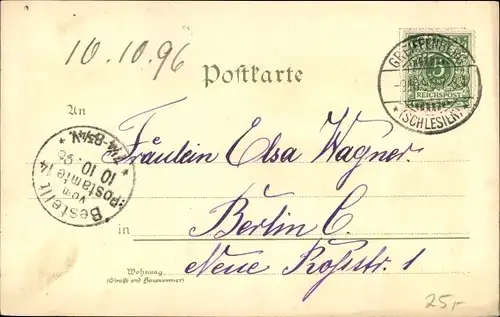 10.10.96
Postkarte
GREIFFENBERG
5
REICHSPOST
* (SCHLESIEN) *
An
Fräulein Elsa Wagner.
Bestellt
vom
Postamte 14
10 10 96
in Berlin C.
Neue Roßstr. 1
Wohnung
(Straße und Hausnummer)
25,-